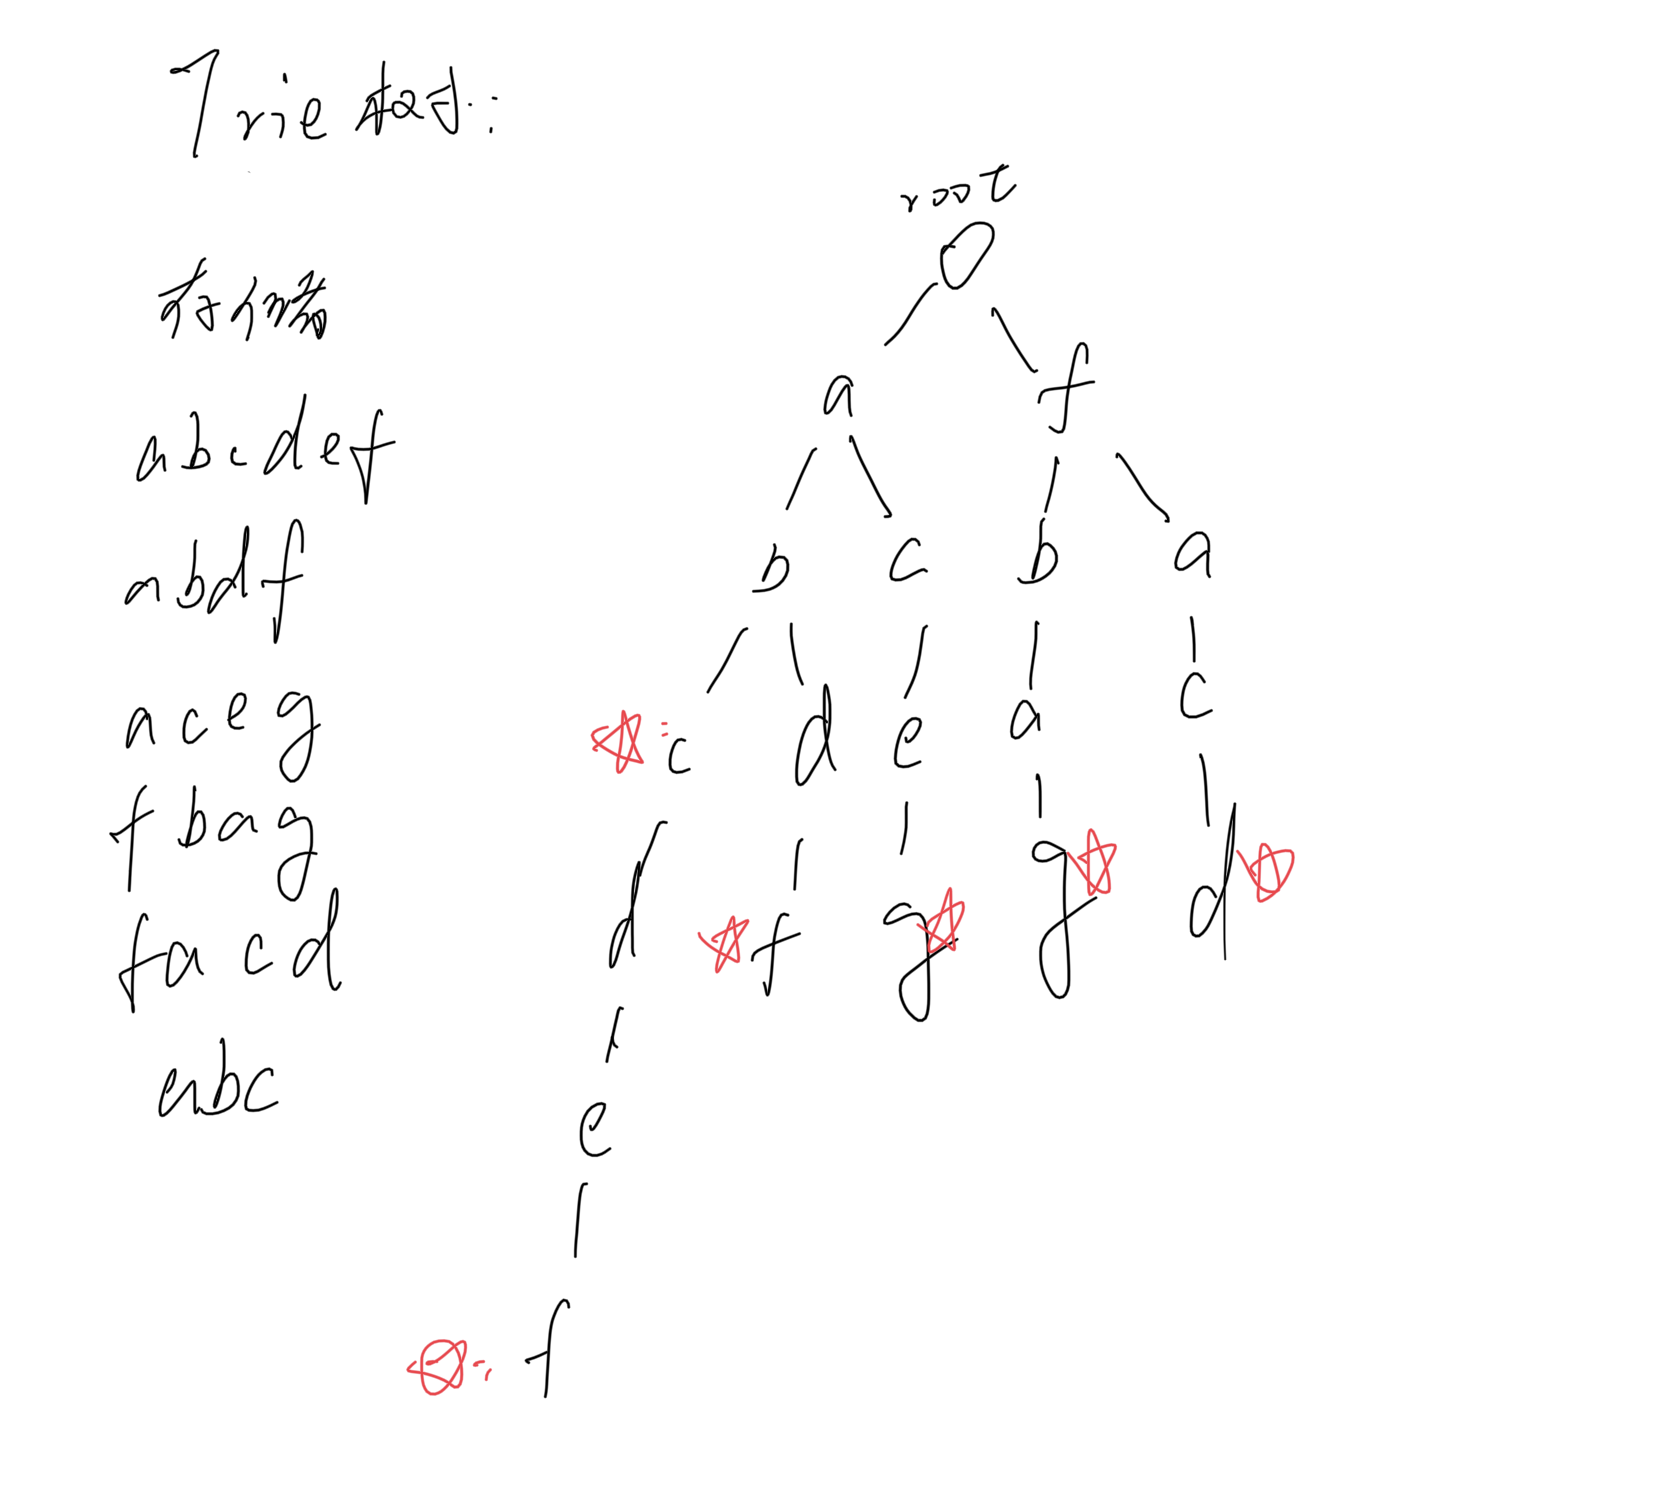 Trie树:
存储
abcdef
abdf
aceg
fbag
facd
abc
root
a f
b c b a
c d e a c
d f g g d
e
f